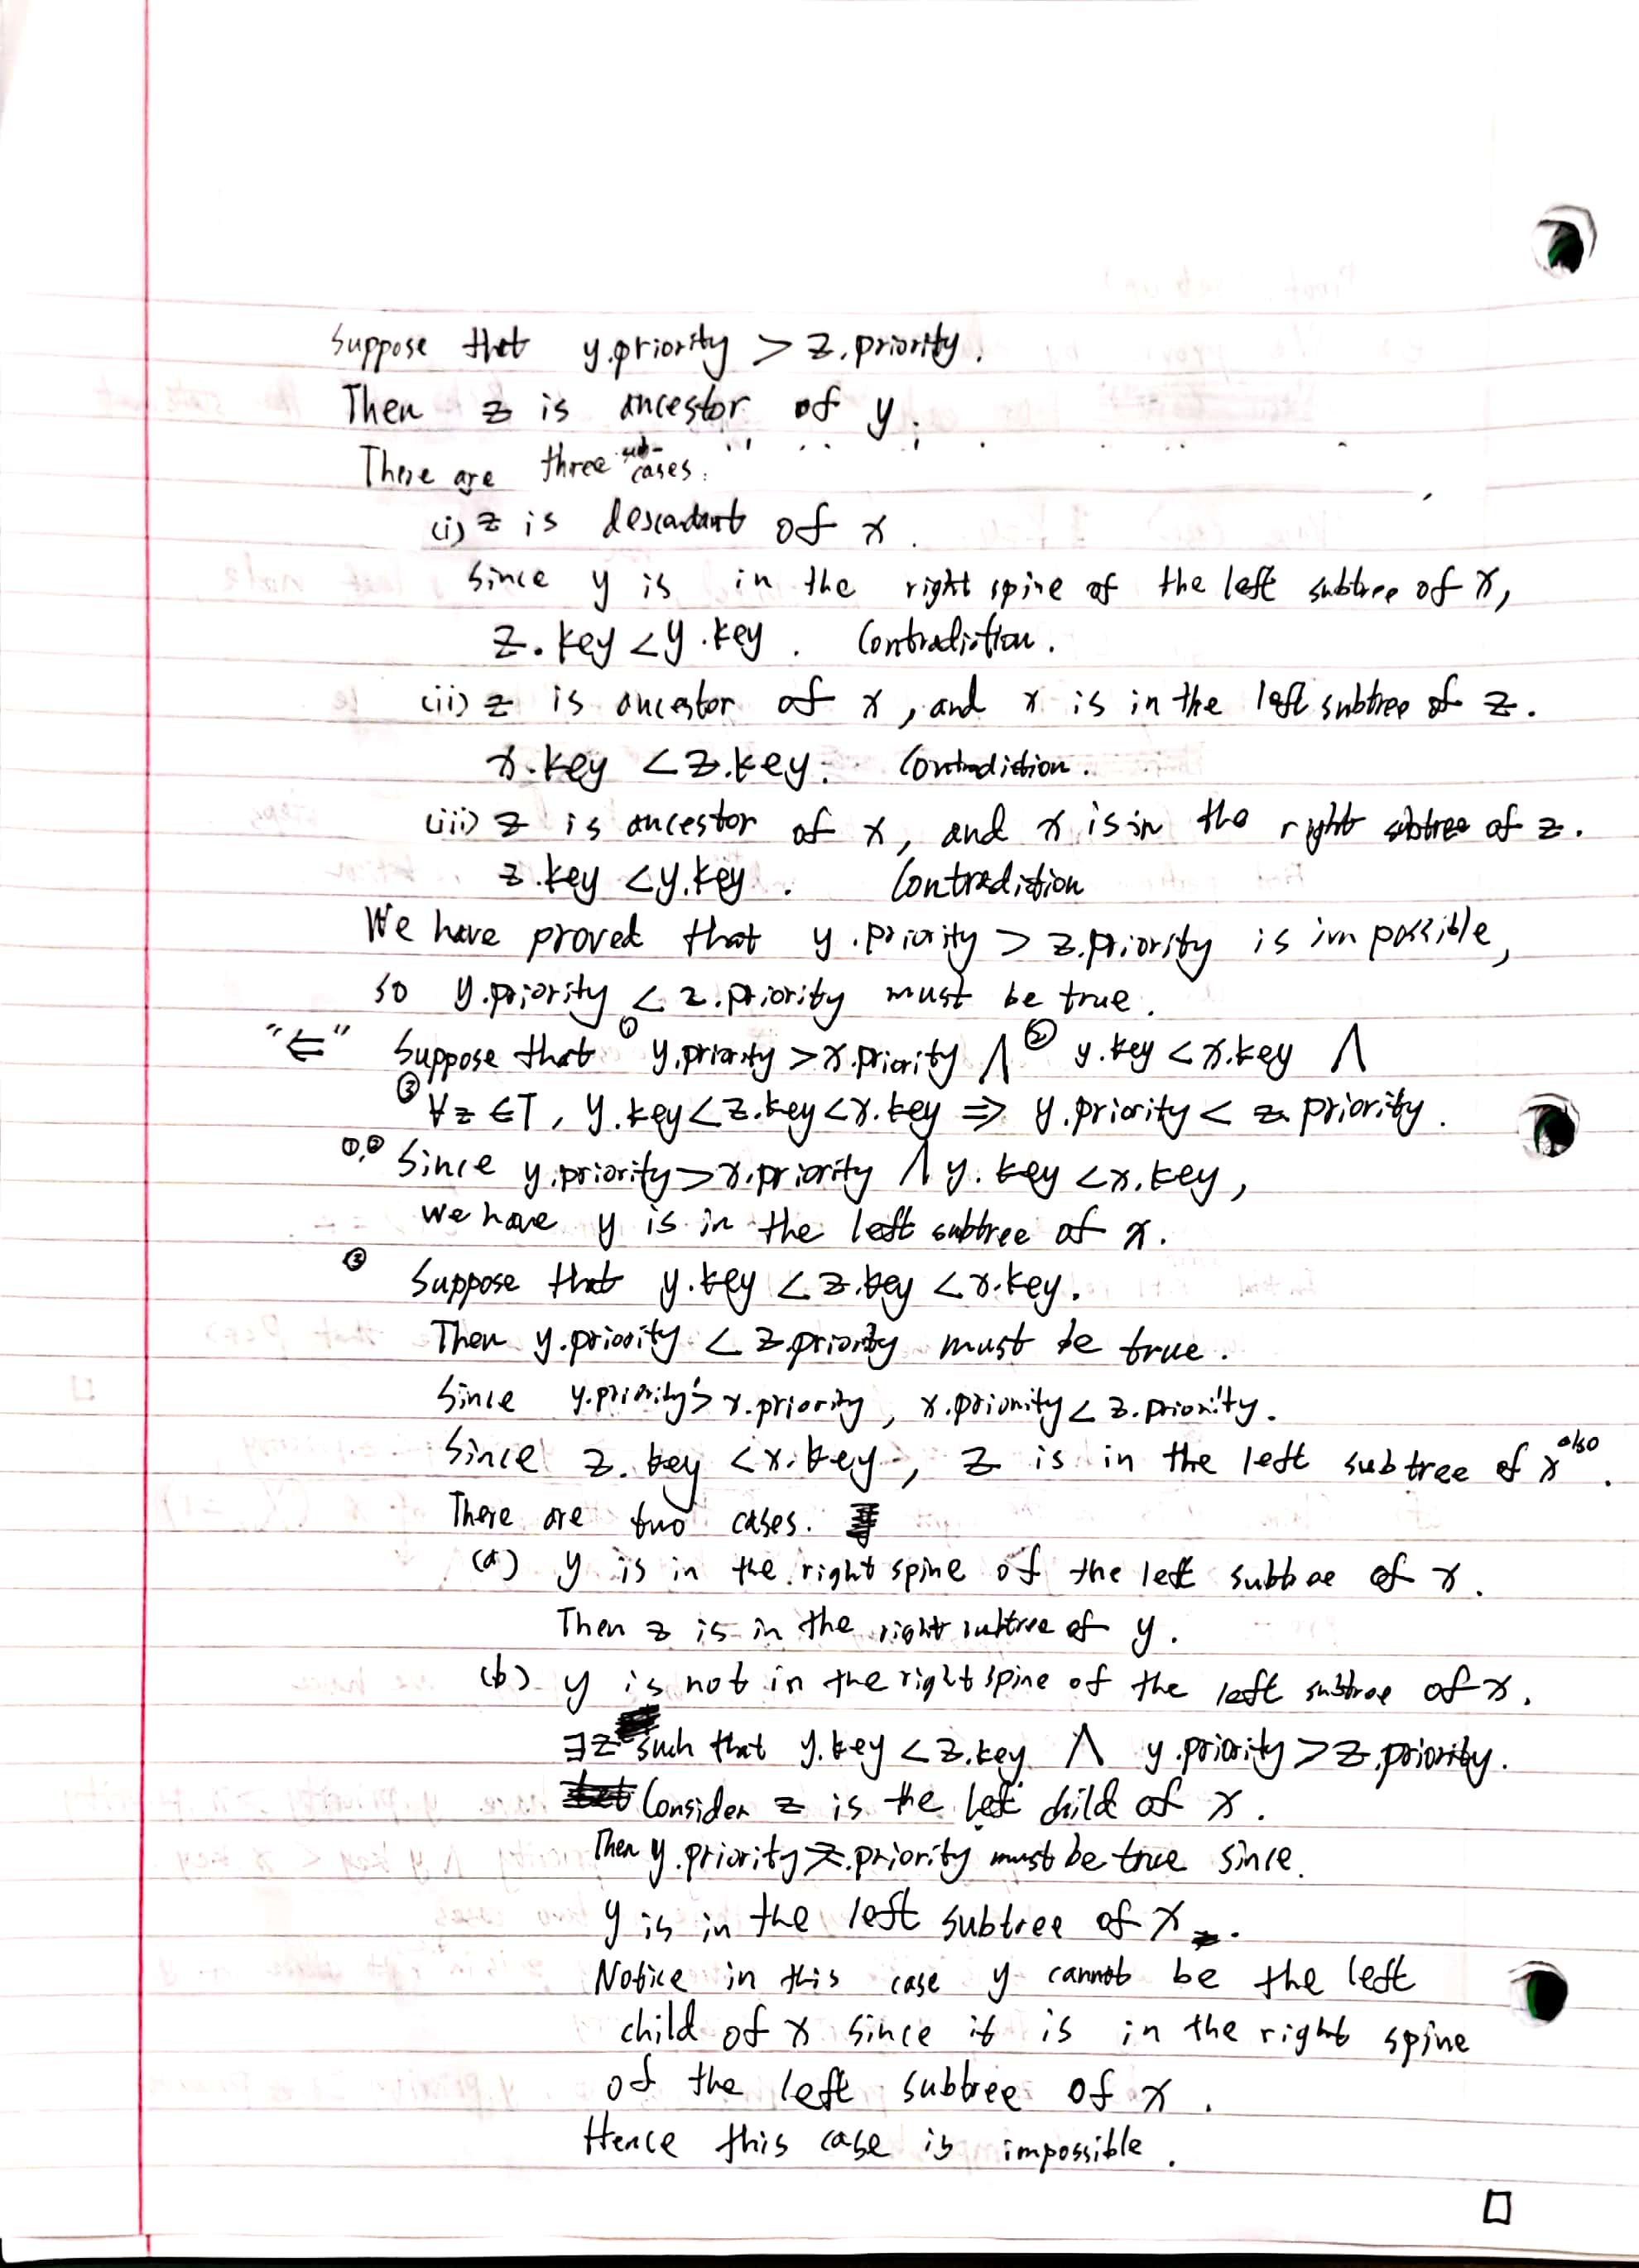 Suppose that y.priority > z.priority.
Then z is ancestor of y.
There are three sub-cases.
(i) z is descadant of x.
Since y is in the right spine of the left subtree of x,
z.key < y.key. Contradiction.
(ii) z is ancestor of x, and x is in the left subtree of z.
x.key < z.key. Contradiction.
(iii) z is ancestor of x, and x is in the right subtree of z.
z.key < y.key. Contradiction
We have proved that y.priority > z.priority is impossible,
so y.priority < z.priority must be true.
"⇐" Suppose that ① y.priority > x.priority ∧ ② y.key < x.key ∧
③ ∀z ∈ T, y.key < z.key < x.key ⇒ y.priority < z.priority.
①,② Since y.priority > x.priority ∧ y.key < x.key,
we have y is in the left subtree of x.
③ Suppose that y.key < z.key < x.key.
Then y.priority < z.priority must be true.
Since y.priority > x.priority, x.priority < z.priority.
Since z.key < x.key, z is in the left subtree of x also.
There are two cases.
(a) y is in the right spine of the left subtree of x.
Then z is in the right subtree of y.
(b) y is not in the right spine of the left subtree of x.
∃z such that y.key < z.key ∧ y.priority > z.priority.
Consider z is the left child of x.
Then y.priority > z.priority must be true since
y is in the left subtree of x.
Notice in this case y cannot be the left
child of x since it is in the right spine
of the left subtree of x.
Hence this case is impossible.
□